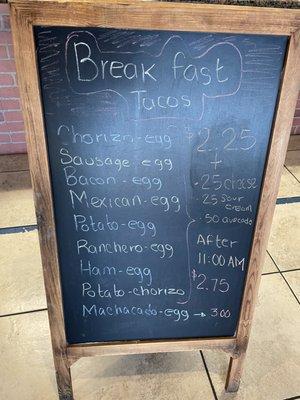 Break fast
Tacos
Chorizo-egg
Sausage-egg
Bacon-egg
Mexican-egg
Potato-egg
Ranchero-egg
Ham-egg
Potato-chorizo
Machacado-egg → 3.00
$2.25
+
.25 cheese
.25 sour
cream
.50 avocado
After
11:00 AM
$2.75